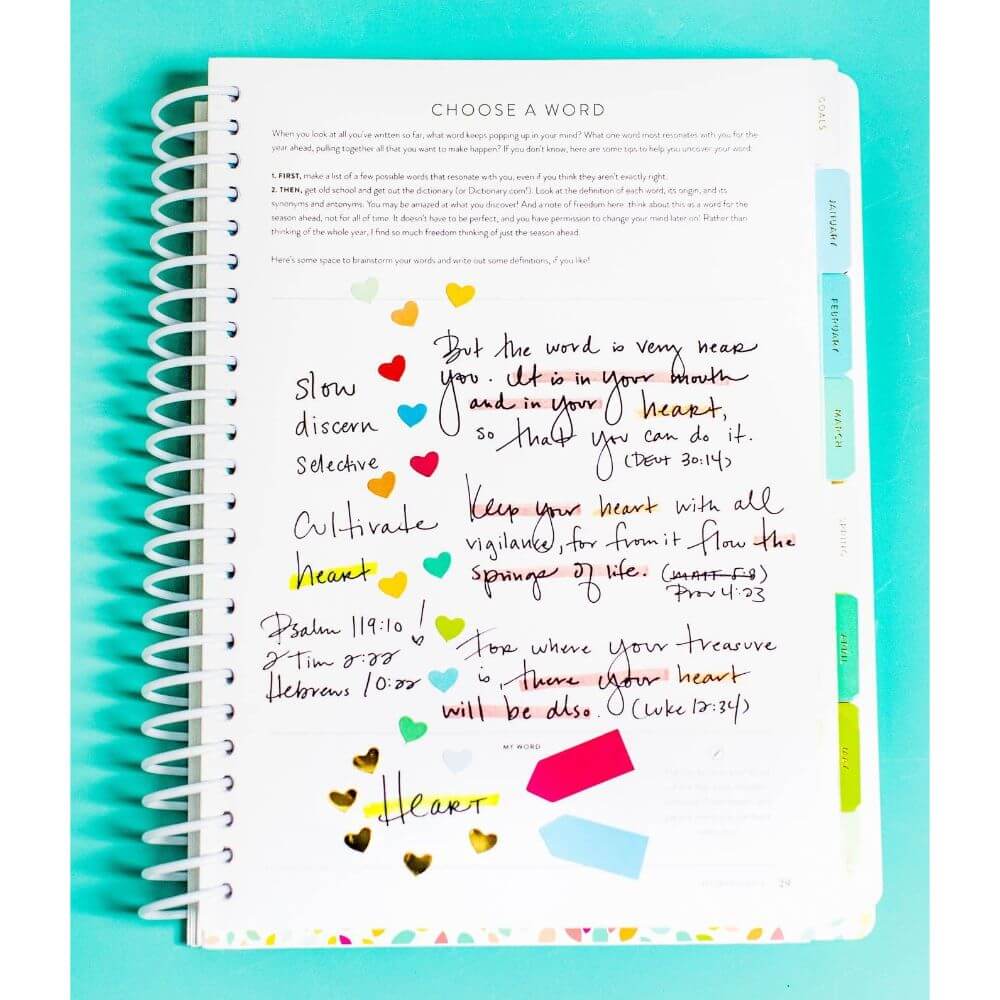 CHOOSE A WORD
When you look at all you've written so far, what word keeps popping up in your mind? What one word most resonates with you for the
year ahead, pulling together all that you want to make happen? If you don't know, here are some tips to help you uncover your word:
1. FIRST, make a list of a few possible words that resonate with you, even if you think they aren't exactly right.
2. THEN, get old school and get out the dictionary (or Dictionary.com!). Look at the definition of each word, its origin, and its
synonyms and antonyms. You may be amazed at what you discover! And a note of freedom here: think about this as a word for the
season ahead, not for all of time. It doesn't have to be perfect, and you have permission to change your mind later on! Rather than
thinking of the whole year, I find so much freedom thinking of just the season ahead.
Here's some space to brainstorm your words and write out some definitions, if you like!
slow
discern
selective
cultivate
heart
Psalm 119:10 !
2 Tim 2:22
Hebrews 10:22
But the word is very near
you. It is in your mouth
and in your heart,
so that you can do it.
(Deut 30:14)
Keep your heart with all
vigilance, for from it flow the
springs of life. (Matt 5:8)
Prov 4:23
For where your treasure
is, there your heart
will be also. (Luke 12:34)
MY WORD
Heart
29
GOALS
JANUARY
FEBRUARY
MARCH
SPRING
APRIL
MAY